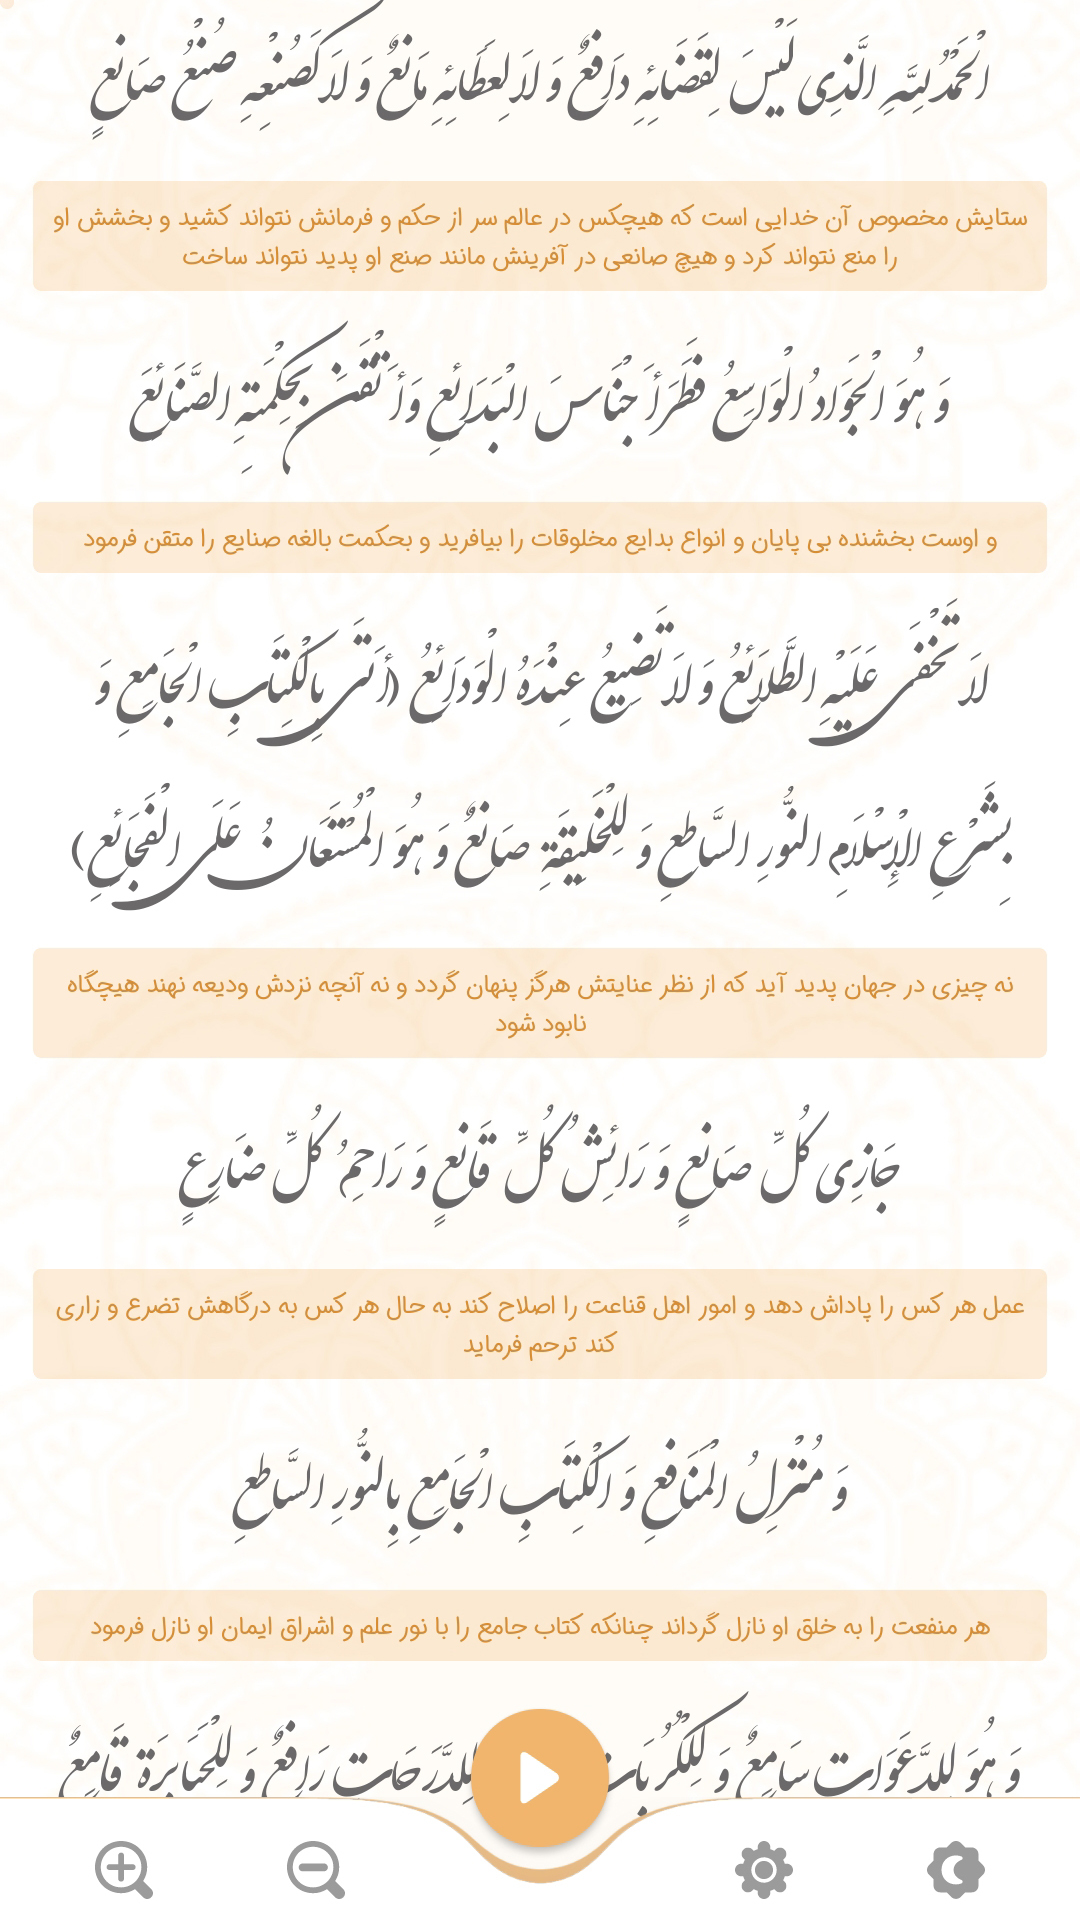 الْحَمْدُ لِلَّهِ الَّذِی لَیْسَ لِقَضَائِهِ دَافِعٌ وَ لاَ لِعَطَائِهِ مَانِعٌ وَ لاَ کَصُنْعِهِ صُنْعُ صَانِعٍ
ستایش مخصوص آن خدایی است که هیچکس در عالم سر از حکم و فرمانش نتواند کشید و بخشش او
را منع نتواند کرد و هیچ صانعی در آفرینش مانند صنع او پدید نتواند ساخت
وَ هُوَ الْجَوَادُ الْوَاسِعُ فَطَرَ أَجْنَاسَ الْبَدَائِعِ وَ أَتْقَنَ بِحِکْمَتِهِ الصَّنَائِعَ
و اوست بخشنده بی پایان و انواع بدایع مخلوقات را بیافرید و بحکمت بالغه صنایع را متقن فرمود
لاَ تَخْفَى عَلَیْهِ الطَّلاَئِعُ وَ لاَ تَضِیعُ عِنْدَهُ الْوَدَائِعُ (أَتَى بِالْکِتَابِ الْجَامِعِ وَ
بِشَرْعِ الْإِسْلاَمِ النُّورِ السَّاطِعِ وَ لِلْخَلِیقَةِ صَانِعٌ وَ هُوَ الْمُسْتَعَانُ عَلَى الْفَجَائِعِ)
نه چیزی در جهان پدید آید که از نظر عنایتش هرگز پنهان گردد و نه آنچه نزدش ودیعه نهند هیچگاه
نابود شود
جَازِی کُلِّ صَانِعٍ وَ رَائِشُ کُلِّ قَانِعٍ وَ رَاحِمُ کُلِّ ضَارِعٍ
عمل هر کس را پاداش دهد و امور اهل قناعت را اصلاح کند به حال هر کس به درگاهش تضرع و زاری
کند ترحم فرماید
وَ مُنْزِلُ الْمَنَافِعِ وَ الْکِتَابِ الْجَامِعِ بِالنُّورِ السَّاطِعِ
هر منفعت را به خلق او نازل گرداند چنانکه کتاب جامع را با نور علم و اشراق ایمان او نازل فرمود
وَ هُوَ لِلدَّعَوَاتِ سَامِعٌ وَ لِلْکُرُبَاتِ لِلدَّرَجَاتِ رَافِعٌ وَ لِلْجَبَابِرَةِ قَامِعٌ